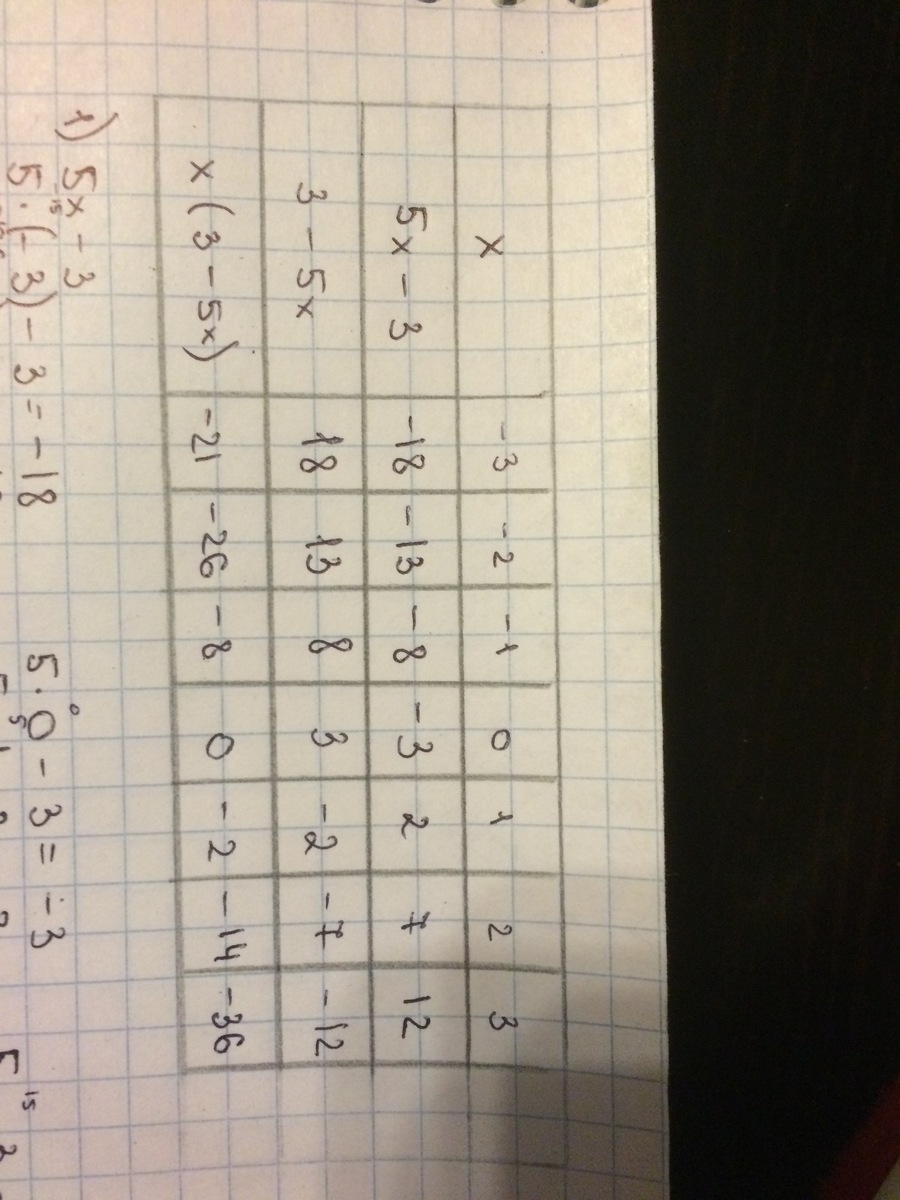 x -3 -2 -1 0 1 2 3
5x - 3 -18 -13 -8 -3 2 7 12
3 - 5x 18 13 8 3 -2 -7 -12
x (3 - 5x) -21 -26 -8 0 -2 -14 -36
1) 5x - 3
5 · (-3) - 3 = -18 5 · 0 - 3 = -3